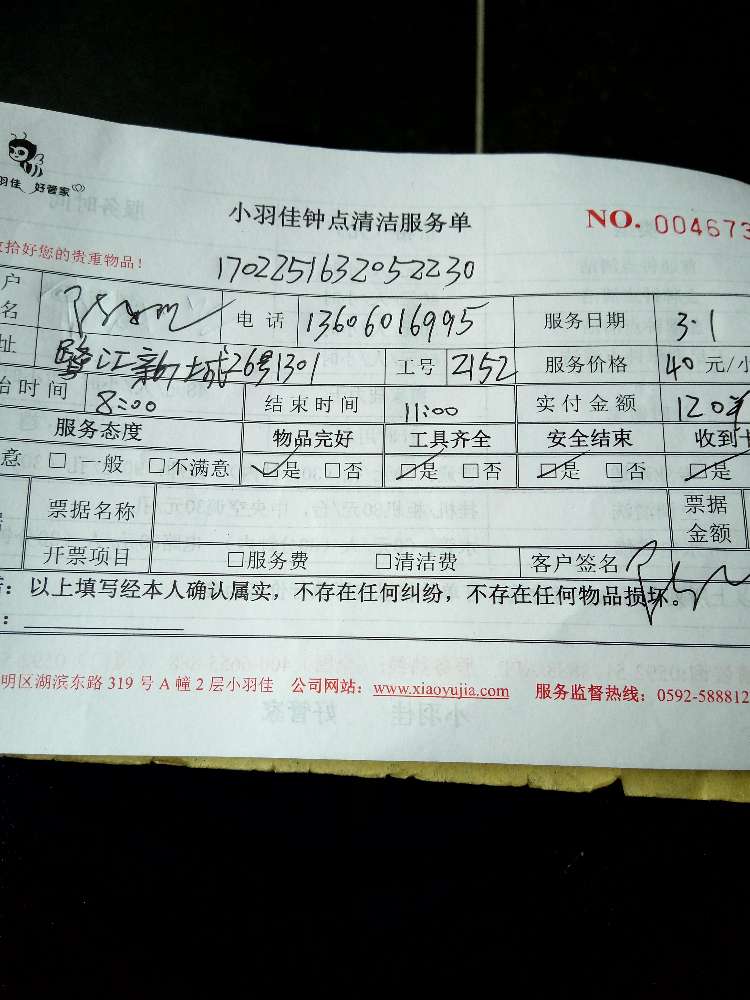 羽佳 好管家
小羽佳钟点清洁服务单 NO. 004673
拾好您的贵重物品!
1702251632052230
户名 电话 13606016995 服务日期 3.1
址 鹭江新城26号1301 工号 2152 服务价格 40元/小
始时间 8:00 结束时间 11:00 实付金额 120
服务态度 物品完好 工具齐全 安全结束 收到
意 □一般 □不满意 □是 □否 □是 □否 □是 □否 □是
票据名称 票据金额
开票项目 □服务费 □清洁费 客户签名
:以上填写经本人确认属实,不存在任何纠纷,不存在任何物品损坏。
明区湖滨东路319号A幢2层小羽佳 公司网站:www.xiaoyujia.com 服务监督热线:0592-588812